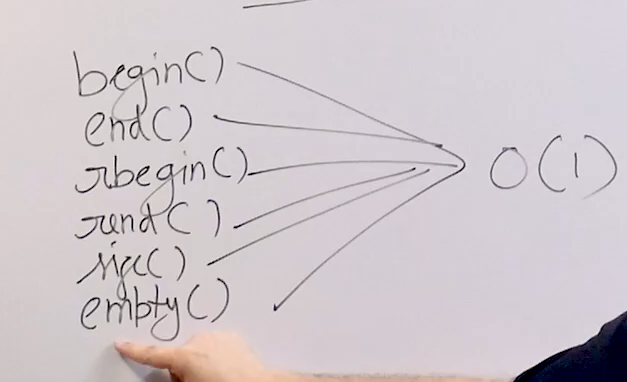 begin()
end()
rbegin()
rend()
size()
empty()
O(1)